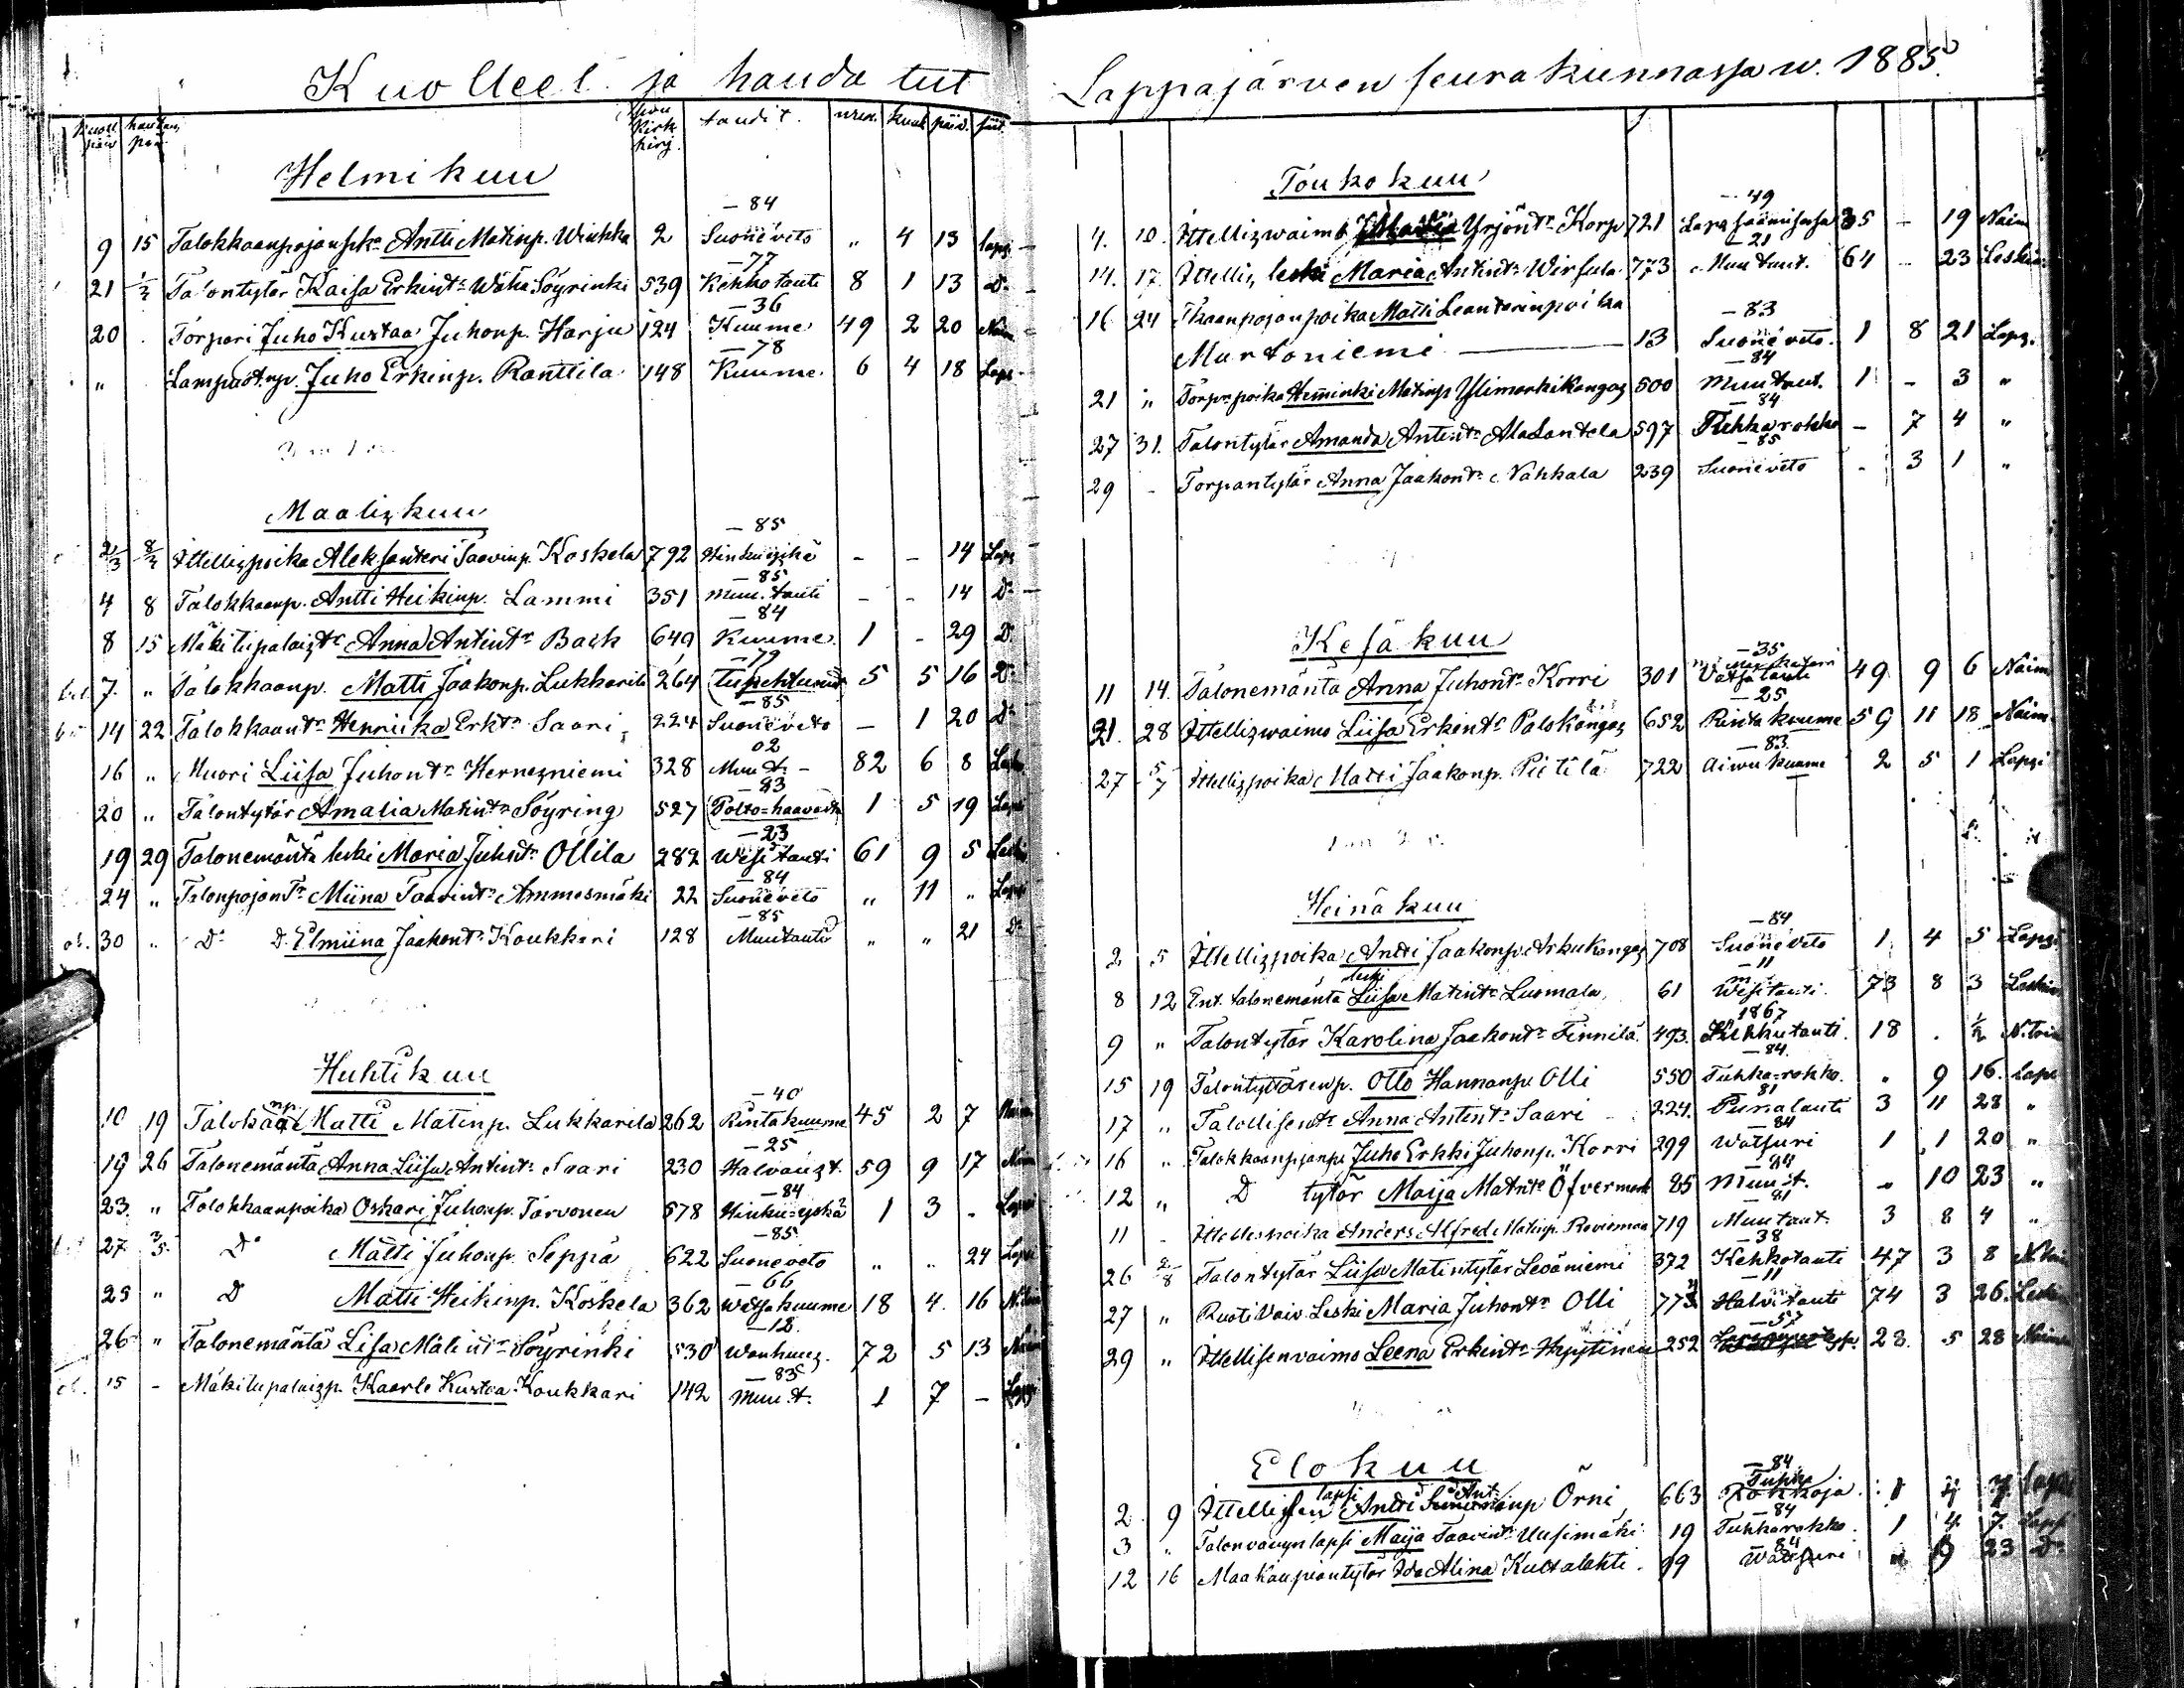 Kuolleet ja haudatut
kuoll päiv hautaus päi Sivu Kirk kirj. taudit. wuos. kuuk päiv. siit.
Helmikuu
9 15 Talokkaanpojanpka Antti Matinp. Wiukka 2 -84 Suonëveto " 4 13 laps
21 1/3 Talontytär Kaisa Erkint. Wähä Söyrinki 539 -77 Kehkotauti 8 1 13 Do
20 . Torpari Juho Kustaa Juhonp. Harju 124 -36 Kuume 49 2 20 Nain
" Lampuot.np. Juho Erkinp. Ranttila 148 -78 Kuume. 6 4 18 Laps
Maaliskuu
2/3 8/3 Ittellispoika Aleksanteri Taavinp. Koskela 792 -85 Hinkuyskä - - 14 Laps
4 8 Talokkaanp. Antti Heikinp. Lammi 351 -85 muu. tauti - - 14 Do
8 15 Mäkitupalaistr Anna Antintr Back 649 -84 Kuume. 1 - 29 Do
7. " Talokkaanp. Matti Jaakonp. Lukkarila 264 -79 5 5 16 Do
14 22 Talokkaantr Henriika Erktr Saari 224 -85 Suonëveto - 1 20 Do
16 " Muori Liisa Juhontr Hernesniemi 328 02 Muu t. - 82 6 8 Leski
20 " Talontytär Amalia Matintr Söyring 527 -83 Polto=haavasta 1 5 19 Lapsi
19 29 Talonemäntä leski Maria Juhntr Ollila 282 -23 Wesitauti 61 9 5 Leski
24 " Talonpojantr Miina Taavintr Ammesmäki 22 -84 Suonëveto " 11 " Lapsi
30 " Do D. Elmiina Jaakontr Koukkari 128 -85 Muutauti " " 21 Do
Huhtikuu
10 19 Talokaanp Matti Matinp. Lukkarila 262 -40 Rintakuume 45 2 7 Nain
19 26 Talonemäntä Anna Liisa Antintr Saari 230 -25 Halvaus t. 59 9 17 Nain
23. " Talokkaanpoika Oskari Juhonp. Tarvonen 678 -84 Hinku=yskä 1 3 - Lapsi
27 3/5 Do Matti Juhonp. Seppä 622 -85 Suoneveto " " 24 Lapsi
25 " D Matti Heikinp. Koskela 362 -66 Watsakuume 18 4. 16 N.
26 " Talonemäntä Lisa Matintr Söyrinki 530 -12 Wanhuus. 72 5 13
15 - Mäkitupalaisp. Kaarle Kustaa Koukkari 142 -83 Muu.t. 1 7 - Lapsi
Lappajärven seurakunnassa w. 1885.
Toukokuu
4. 10. Ittelliswaimo Yrjöntr Korp 721 -49 35 - 19 Naim
14. 17. Ittellis leski Maria Antintr Wirsula 773 -21 Muu taut. 64 - 23 Leski
16 24 Tkaanpojanpoika Matti Leanterinpoika
Murtoniemi 13 -83 Suonëveto. 1 8 21 Laps.
21 " Torp.poika Heminki Matinp Ylimarkikangas 500 -84 muu taut. 1 - 3 "
27 31. Talontytär Amanda Antintr Ala Lantela 597 -84 Tuhkarokko - 7 4 "
29 - Torpantytär Anna Jaakontr Nahkala 239 -85 Suonëveto - 3 1 "
Kesäkuu
11 14. Talonemäntä Anna Juhontr Korri 301 -35 Vatsatauti 49 9 6 Naim
21. 28 Ittelliswaimo Liisa Erkintr Palokangas 652 -25 Rinta kuume 59 11 18 Naim
27 5/7 Ittellispoika Matti Jaakonp. Pietilä 722 -83 Aiwukuume 2 5 1 Lapsi
Heinäkuu
2 5 Ittellispoika Antti Jaakonp. Arkukangas 708 -84 Suonëveto 1 4 5 Lapsi
8 12 Ent. talonemäntä leski Liisa Matintr Luomala 61 -11 Wesitauti. 73 8 3 Leski
9 " Talontytär Karolina Jaakontr Finnilä 493. 1867 18 . 1/2 N.
15 19 Talontyttären p. Otto Hannanp. Olli 550 -84. Tuhka=rokko. " 9 16. Laps
17 " Talollisentr Anna Antintr Saari - 224. 81 Punatauti 3 11 28 "
16 " Talokkaanpojanp. Juho Erkki Juhonp. Korri 299 -84 Watsuri 1 1 20 "
12 " D tytär Maija Matintr Öfvermark 85 -84 Muu t. " 10 23 "
11 - Ittellespoika Anders Alfred Matinp. 719 -81 Muutaut. 3 8 4 "
26 2/8 Talontytär Liisa Matintytär Leväniemi 372 -38 Kehkotauti 47 3 8 N.
27 " Ruoti Vaiv. Leski Maria Juhontr Olli 773 -11 Halv. tauti 74 3 26. Leski
29 " Ittellisenvaimo Leena Erkintr 252 -57 28. 5 28 Naim
Elokuu
2 9 Ittellisen lapsi Antti Ant. Örni 663 -84 Tuhka 1 laps
3 " Talonvävyn lapsi Maija Taavintr Uusimäki 19 -84 Tuhkarokko. 1 4 7. Laps
12 16 Maakaupiantytär Ida Alina Kultalahti. 99 84 Watsuri " 9 23 Do